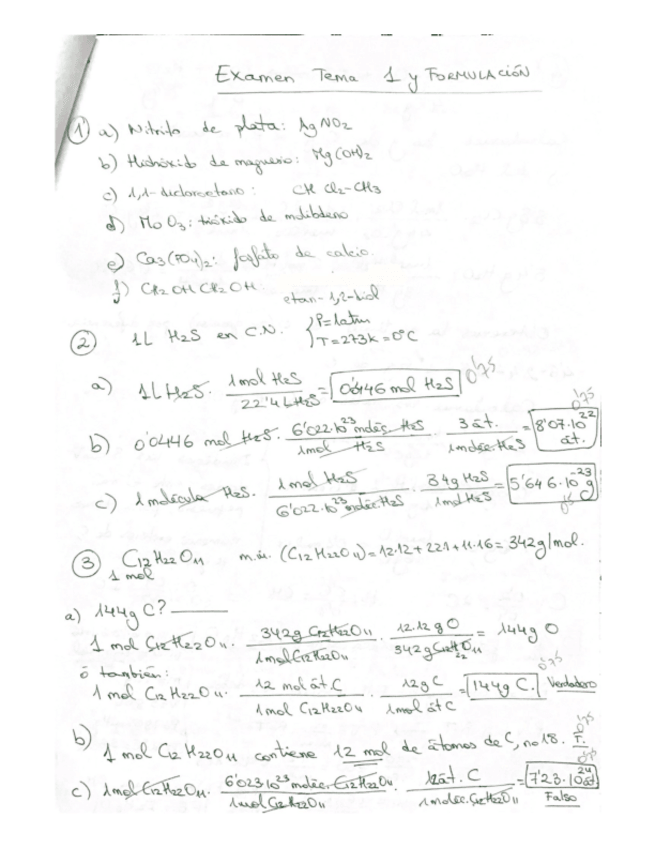 Examen Tema 1 y FORMULACIÓN
1 a) Nitrito de plata: AgNO2
b) Hidróxido de magnesio: Mg(OH)2
c) 1,1-dicloroetano: CHCl2-CH3
d) MoO3: trióxido de molibdeno
e) Ca3(PO4)2: fosfato de calcio
f) CH2OHCH2OH: etan-1,2-diol
2 1L H2S en C.N. { P=1atm
T=273K=0ºC
a) 1L H2S · 1mol H2S / 22'4 L H2S = 0'0446 mol H2S 0'75
b) 0'0446 mol H2S · 6'022·10^23 moléc. H2S / 1mol H2S · 3 át. / 1moléc. H2S = 8'07·10^22 át. 0'75
c) 1 molécula H2S · 1mol H2S / 6'022·10^23 moléc. H2S · 34g H2S / 1mol H2S = 5'646·10^-23 g
3 C12H22O11 m.m. (C12H22O11)=12·12+22·1+11·16=342g/mol.
1 mol
a) 144g C?
1 mol C12H22O11 · 342g C12H22O11 / 1mol C12H22O11 · 12·12 g O / 342g C12H22O11 = 144g O
ó también:
1 mol C12H22O11 · 12 mol át. C / 1mol C12H22O11 · 12g C / 1mol át C = 144g C. Verdadero 0'75
b) 1 mol C12H22O11 contiene 12 mol de átomos de C, no 18. F. 0'75
c) 1mol C12H22O11 · 6'023·10^23 moléc. C12H22O11 / 1mol C12H22O11 · 12át. C / 1moléc. C12H22O11 = 7'23·10^24 át Falso 0'75